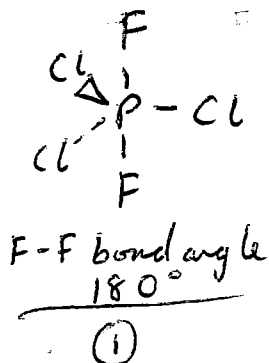 F
Cl
P - Cl
Cl
F
F-F bond angle
180°
1